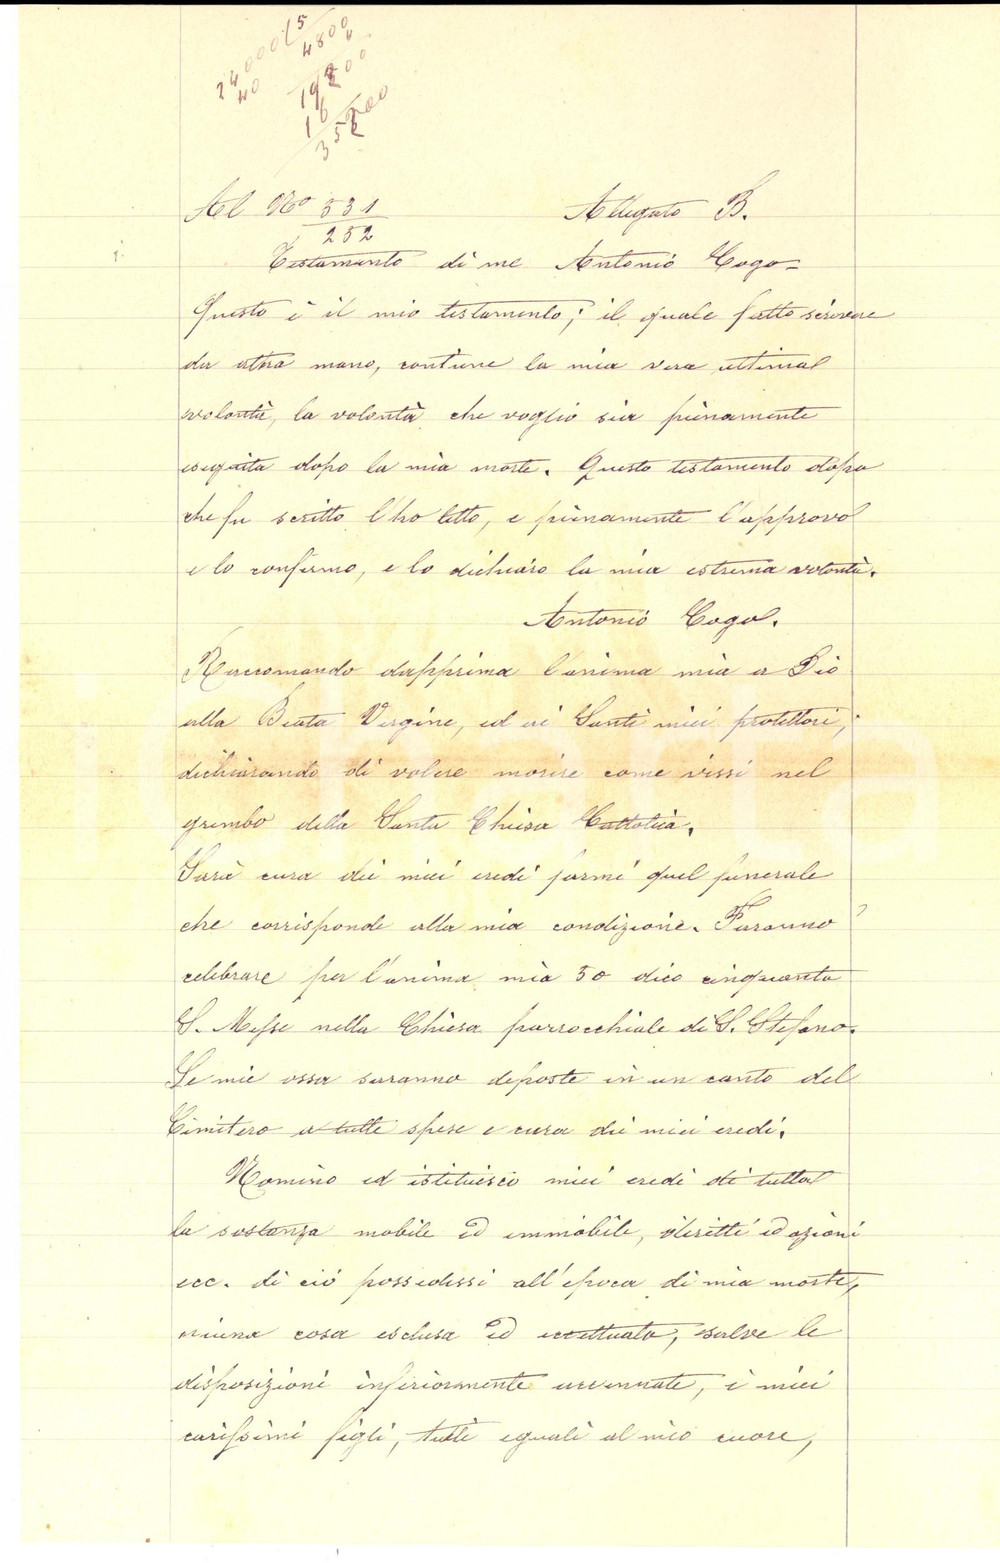 24000 / 5
40 4800
192 00
16
352 00
Al No 331
252
Allegato B.
Testamento di me Antonio Cogo=
Questo è il mio testamento; il quale fatto scrivere
da altra mano, contiene la mia vera ultima
volontà, la volontà che voglio sia pienamente
eseguita dopo la mia morte. Questo testamento dopo
che fu scritto l'ho letto, e pienamente l'approvo
e lo confermo, e lo dichiaro la mia estrema volontà.
Antonio Cogo.
Raccomando dapprima l'anima mia a Dio
alla Beata Vergine, ed ai Santi miei protettori;
dichiarando di volere morire come vissi nel
grembo della Santa Chiesa Cattolica.
Sarà cura dei miei eredi farmi quel funerale
che corrisponde alla mia condizione. Faranno
celebrare per l'anima mia 50 dico cinquanta
S. Messe nella Chiesa parrocchiale di S. Stefano.
Le mie ossa saranno deposte in un canto del
Cimitero a tutte spese e cura dei miei eredi.
Nomino ed istituisco miei eredi di tutta
la sostanza mobile ed immobile, diritti ed azioni
ecc. di ciò possedessi all'epoca di mia morte,
niuna cosa esclusa ed eccettuata, salve le
disposizioni inferiormente accennate, i miei
carissimi figli, tutti eguali al mio cuore,